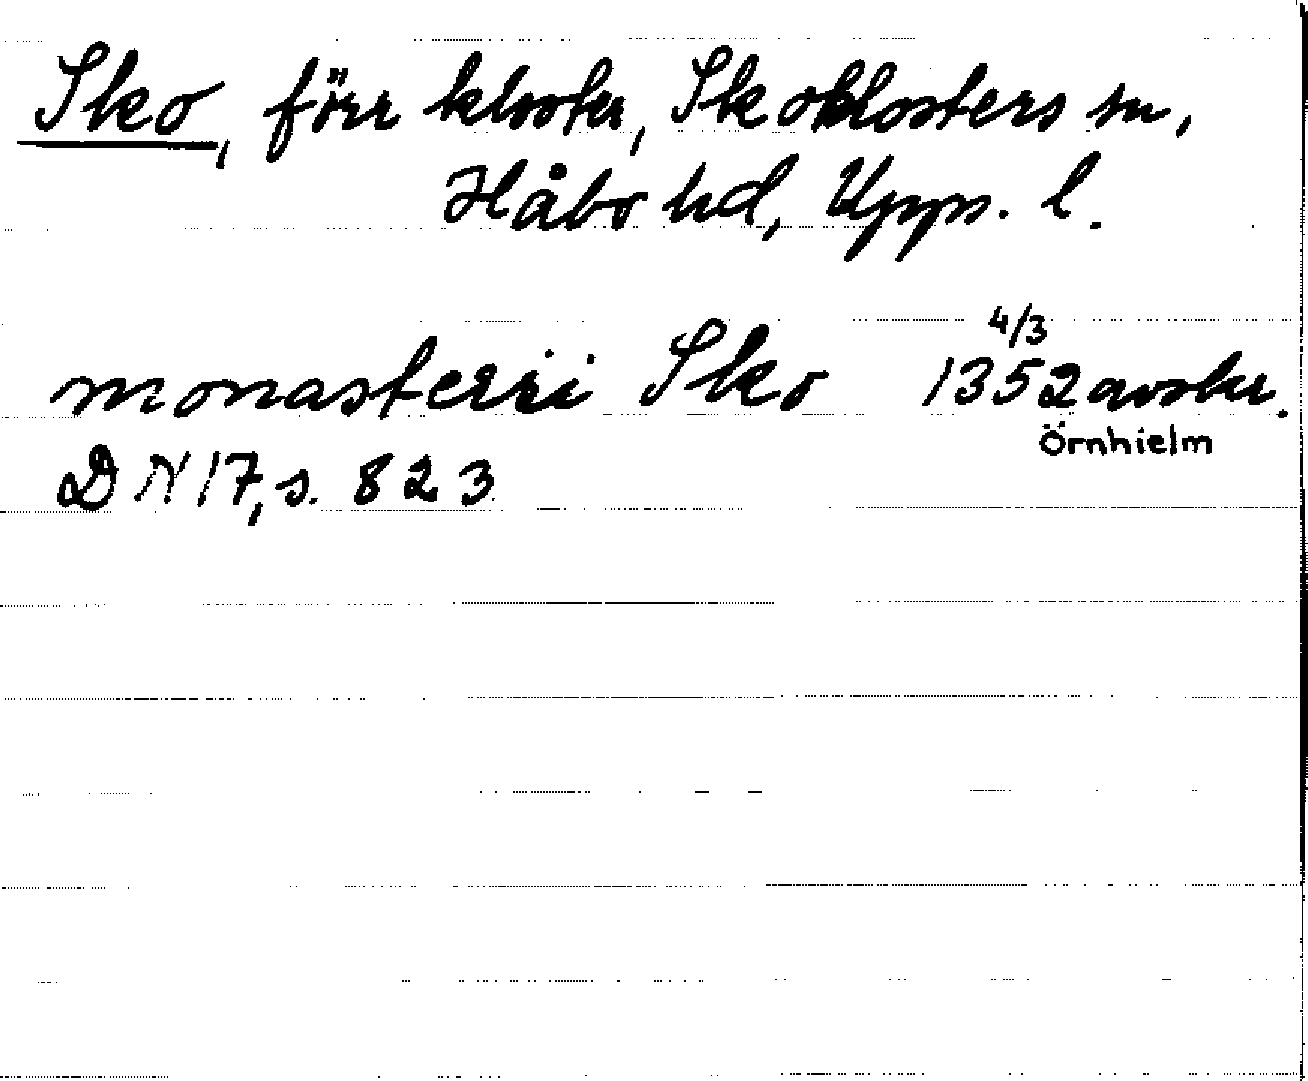 Sko, förr kloster, Skoklosters sn,
Håbo hd, Upps. l.
monasterii Sko 4/3 1352 avskr.
Örnhielm
DN 17, s. 823